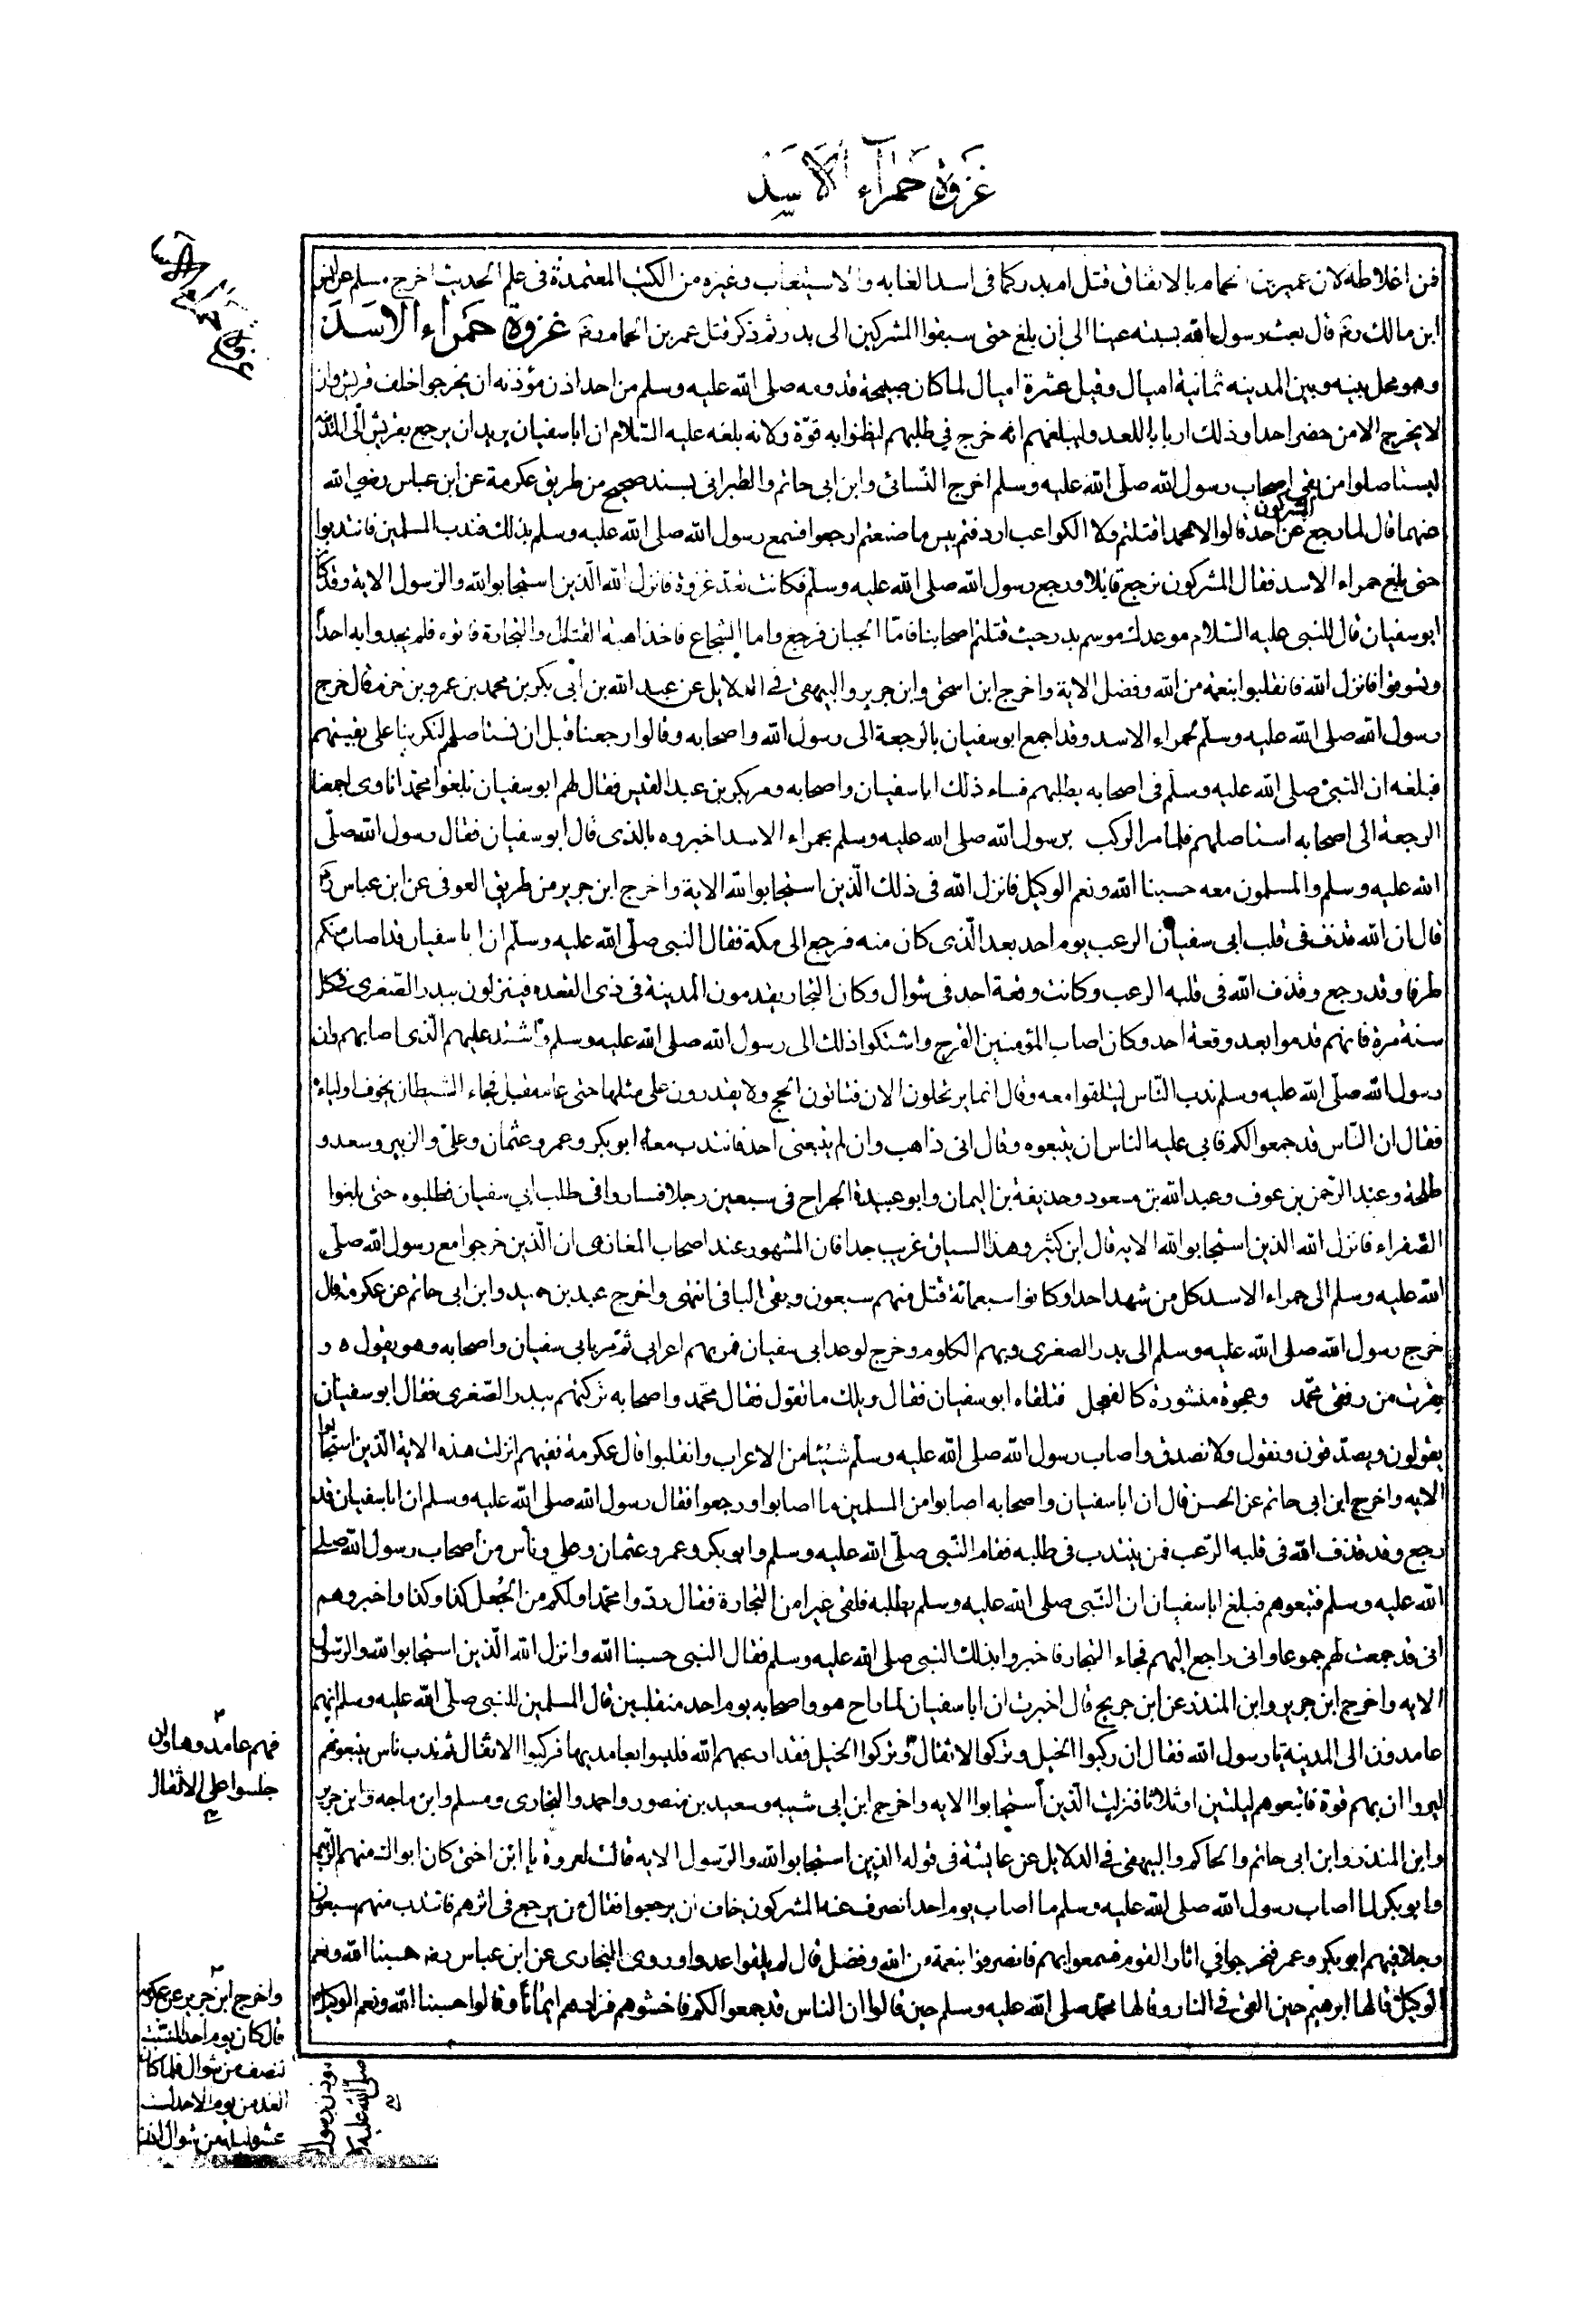 غزوة حمراء الاسد
فمن اغلاطه لان عمير بن الحمام بالاتفاق قتل ام بدر كما فى اسد الغابه والاستيعاب وغيره من الكتب المعتمدة فى علم الحديث اخرج مسلم عن انس
ابن مالك رضـ قال بعث رسول الله بسبسه عينا الى أن بلغ حتى سبقوا المشركين الى بدر ثم ذكر قتل عمر بن الحمام رضـ غزوة حمراء الاسد
وهو محل بينه وبين المدينه ثمانية اميال وقيل عشرة اميال لما كان صبيحة قدومه صلى الله عليه وسلم من احد اذن مؤذنه ان يخرجوا خلف قريش وان
لا يخرج الا من حضر احدا وذلك اربابا للعدو ليبلغهم انه خرج في طلبهم ليظنوا به قوّة ولانه بلغه عليه السّلام ان ابا سفيان يريد ان يرجع بقريش الى المدينه
ليستاصلوا من بقى اصحاب رسول الله صلى الله عليه وسلم اخرج النّسائى وابن ابى حاتم والطبرانى بسند صحيح من طريق عكرمة عن ابن عباس رضي الله
عنهما قال لما رجع المشركون عن احد قالوا لا محمدا قتلتم ولا الكواعب اردفتم بيس ما صنعتم ارجعوا فسمع رسول الله صلى الله عليه وسلم بذلك فندب المسلمين فانتدبوا
حتى بلغ حمراء الاسد فقال المشركون نرجع قابلا ورجع رسول الله صلى الله عليه وسلم فكانت تعدّ غزوة فانزل الله الّذين استجابوا لله والرّسول الاية وقد كان
ابو سفيان قال للنبى عليه السّلام موعدك موسم بدر حيث قتلتم اصحابنا فامّا الجبان فرجع واما الشجاع فاخذ اهبة القتال والتجارة فاتوه فلم يجدوا به احداً
وتسوقوا فانزل الله فانقلبوا بنعمة من الله وفضل الاية واخرج ابن اسحق وابن جرير والبيهقى فى الدلايل عن عبد الله بن ابى بكر بن محمد بن عمرو بن حزم قال خرج
رسول الله صلى الله عليه وسلّم لحمراء الاسد وقد اجمع ابو سفيان بالرجعة الى رسول الله واصحابه وقالوا رجعنا قبل ان نستاصلهم لنكرنا على بقيتهم
فبلغه ان النبىّ صلى الله عليه وسلّم فى اصحابه يطلبهم فساء ذلك ابا سفيان واصحابه ومر بكر بن عبد القيس فقال لهم ابو سفيان بلغوا محمدا ناوى اجمعنا
الرجعة الى اصحابه استاصلهم فلما مر الركب برسول الله صلى الله عليه وسلم بحمراء الاسد اخبروه بالذى قال ابو سفيان فقال رسول الله صلّى
الله عليه وسلم والمسلمون معه حسبنا الله ونعم الوكيل فانزل الله فى ذلك الّذين استجابوا لله الاية واخرج ابن جرير من طريق العوفى عن ابن عباس رضـ
قال ان الله قذف فى قلب ابى سفيان الرعب يوم احد بعد الّذى كان منه فرجع الى مكة فقال النبى صلّى الله عليه وسلّم ان ابا سفيان قد اصاب منكم
طرفا وقد رجع وقذف الله فى قلبه الرعب وكانت وقعة احد فى شوال وكان التجار يقدمون المدينة فى ذى القعده فينزلون ببدر الصّغرى فى كل
سنة مرة فانهم قدموا بعد وقعة احد وكان اصاب المؤمنين القرح واشتكوا ذلك الى رسول الله صلى الله عليه وسلم واشتد عليهم الّذى اصابهم وان
رسول الله صلّى الله عليه وسلم ندب النّاس لينطلقوا معه وقال انما يرتحلون الان فتاتون الحج ولا يقدرون على مثلها حتى عام مقبل فجاء الشيطان يخوف اولياءه
فقال ان النّاس قد جمعوا لكم فابى عليه الناس ان يتبعوه وقال انى ذاهب وان لم يتبعنى احد فانتدب معه ابو بكر وعمر وعثمان وعلىّ والزبير وسعد و
طلحة وعبد الرّحمن بن عوف وعبد الله بن مسعود وحذيفة بن اليمان وابو عبيدة الجراح فى سبعين رجلا فساروا فى طلب ابي سفيان فطلبوه حتى بلغوا
الصّفراء فانزل الله الذين استجابوا لله الايه قال ابن كثير وهذا السياق غريب جدا فان المشهور عند اصحاب المغازى ان الّذين خرجوا مع رسول الله صلّى
الله عليه وسلم الى حمراء الاسد كل من شهد احدا وكانوا سبعمائة قتل منهم سبعون وبقى الباقى انتهى واخرج عبد بن حميد وابن ابى حاتم عن عكرمة قال
خرج رسول الله صلى الله عليه وسلم الى بدر الصغرى وبهم الكلوم وخرج لوعد ابى سفيان فمر بهم اعرابى ثمّ مر بابى سفيان واصحابه وهو يقول ه و
نفرت من رفقى محمّد وعجوة منثورة كالفجل فتلقاه ابو سفيان فقال ويلك ما تقول فقال محمّد واصحابه تركتهم ببدر الصّغرى فقال ابو سفيان
يقولون ويصدّقون ونقول ولا نصدق واصاب رسول الله صلى الله عليه وسلّم شيئا من الاعراب وانقلبوا قال عكرمة ففيهم انزلت هذه الاية الّذين استجابوا
الايه واخرج ابن ابى حاتم عن الحسن قال ان ابا سفيان واصحابه اصابوا من المسلمين ما اصابوا ورجعوا فقال رسول الله صلى الله عليه وسلم ان ابا سفيان قد
رجع وقد قذف الله فى قلبه الرّعب فمن ينتدب فى طلبه فقام النّبى صلّى الله عليه وسلم وابو بكر وعمر وعثمان وعلي وناس من أصحاب رسول الله صلى
الله عليه وسلم فتبعوهم فبلغ ابا سفيان ان النّبى صلى الله عليه وسلم يطلبه فلقى عيرا من التجارة فقال ردّوا محمّدا ولكم من الجُعل كذا وكذا واخبروهم
انى قد جمعت لهم جموعا وانى راجع اليهم فجاء التجار فاخبروا بذلك النبى صلى الله عليه وسلم فقال النبى حسبنا الله وانزل الله الّذين استجابوا لله والرّسول
الايه واخرج ابن جرير وابن المنذر عن ابن جريج قال اخبرت ان ابا سفيان لما راح هو واصحابه يوم احد منقلبين قال المسلمين للنبى صلّى الله عليه وسلم انهم
عامدون الى المدينة يا رسول الله فقال ان ركبوا الخيل وتركوا الاثقال وتركوا الخيل فقد ارعبهم الله فليسوا بعامديها فركبوا الاثقال ثم ندب ناس يتبعونهم
ليروا ان بهم قوة فاتبعوهم ليلتين او ثلاثا فنزلت الّذين استجابوا الايه واخرج ابن ابى شيبه وسعيد بن منصور واحمد والبخارى ومسلم وابن ماجه وابن جرير
وابن المنذر وابن ابى حاتم والحاكم والبيهقى فى الدلايل عن عايشة فى قوله الذين استجابوا لله والرّسول الايه قالت لعروة يا ابن اختى كان ابواك منهم الزبير
وابو بكر لما اصاب رسول الله صلى الله عليه وسلم ما اصاب يوم احد انصرف عنه المشركون خاف ان يرجعوا فقال من يرجع فى اثرهم فانتدب منهم سبعون
رجلا فيهم ابو بكر وعمر فخرجوا في اثار القوم فسمعوا بهم فانصرفوا بنعمة من الله وفضل قال لم يلقوا عدوا وروى البخارى عن ابن عباس رضـ حسبنا الله ونعم
الوكيل قالها ابرهيم حين القى فى النار وقالها محمّد صلى الله عليه وسلم حين قالوا ان الناس قد جمعوا لكم فاخشوهم فزادهم ايمانًا وقالوا حسبنا الله ونعم الوكيل
فهم عامدوها وان
جلسوا على الاثقال
واخرج ابن جرير عن عكرمه
قال كان يوم احد السّبت
نصف من شوال فلما كان
الغد من يوم الاحد لست
عشر ليلة من شوال اذن
مؤذن رسول
صلى الله عليه